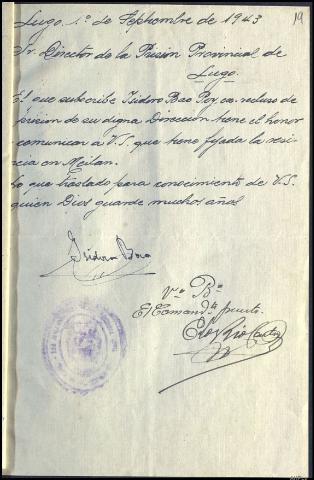 Lugo, 1º de Septiembre de 1943
19
Sr. Director de la Prisión Provincial de
Lugo.
El que subscribe Isidoro Bao Poy, ex. recluso de
prision de su digna Dirección tiene el honor
comunicar a V.S. que tiene fijada la resi-
cia en Meilan.
Lo que traslado para conocimiento de V.S.
quien Dios guarde muchos años
Isidoro Bao
Vº Bº
El Comandte puesto.